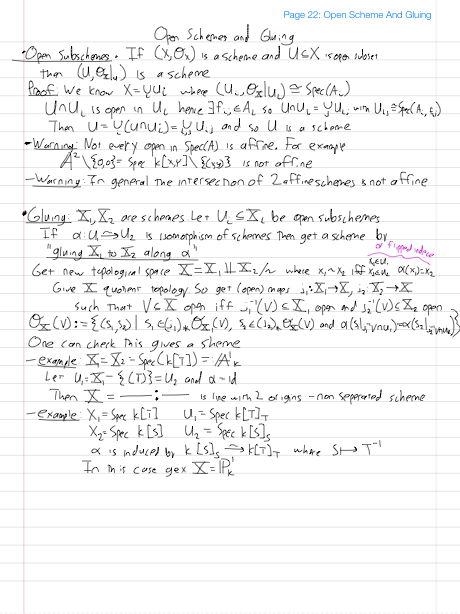 Page 22: Open Scheme And Gluing
Open Schemes and Gluing
• Open Subschemes • If (X, O_X) is a scheme and U ⊆ X is open subset
then (U, O_X|_U) is a scheme
Proof: We know X = ∪U_i where (U_i, O_X|_{U_i}) ≅ Spec(A_i)
U∩U_i is open in U_i hence ∃ f_{i,j} ∈ A_i so U∩U_i = ∪U_{i,j} with U_{i,j} ≅ Spec(A_{i,f_{i,j}})
Then U = ∪(U∩U_i) = ∪U_{i,j} and so U is a scheme
- Warning: Not every open in Spec(A) is affine. For example
A² \ {0,0} = Spec k[x,y] \ {(x,y)} is not affine
- Warning: In general the intersection of 2 affine schemes is not affine
• Gluing: X_1, X_2 are schemes. Let U_i ⊆ X_i be open subschemes
If α: U_1 ≅→ U_2 is isomorphism of schemes then get a scheme by
"gluing X_1 to X_2 along α"
α flipped indices
Get new topological space X = X_1 ∐ X_2/~ where x_1 ~ x_2 iff x_1∈U_1, x_2∈U_2 α(x_1)=x_2
Give X quotient topology. So get (open) maps j_1: X_1 → X, j_2: X_2 → X
such that V ⊆ X open iff j_1^{-1}(V) ⊆ X_1 open and j_2^{-1}(V) ⊆ X_2 open
O_X(V) := {(s_1, s_2) | s_1 ∈ (j_1)_* O_{X_1}(V), s_2 ∈ (j_2)_* O_{X_2}(V) and α(s_1|_{j_1^{-1}(V)∩U_1}) = α(s_2|_{j_2^{-1}(V)∩U_2})}
One can check this gives a scheme
- example: X_1 = X_2 = Spec(k[T]) = A¹_k
Let U_1 = X_1 - {(T)} = U_2 and α = id
Then X = ——:—— is line with 2 origins - non seperated scheme
- example: X_1 = Spec k[T] U_1 = Spec k[T]_T
X_2 = Spec k[S] U_2 = Spec k[S]_S
α is induced by k[S]_S ≅→ k[T]_T where S ↦ T^{-1}
In this case get X = P¹_k